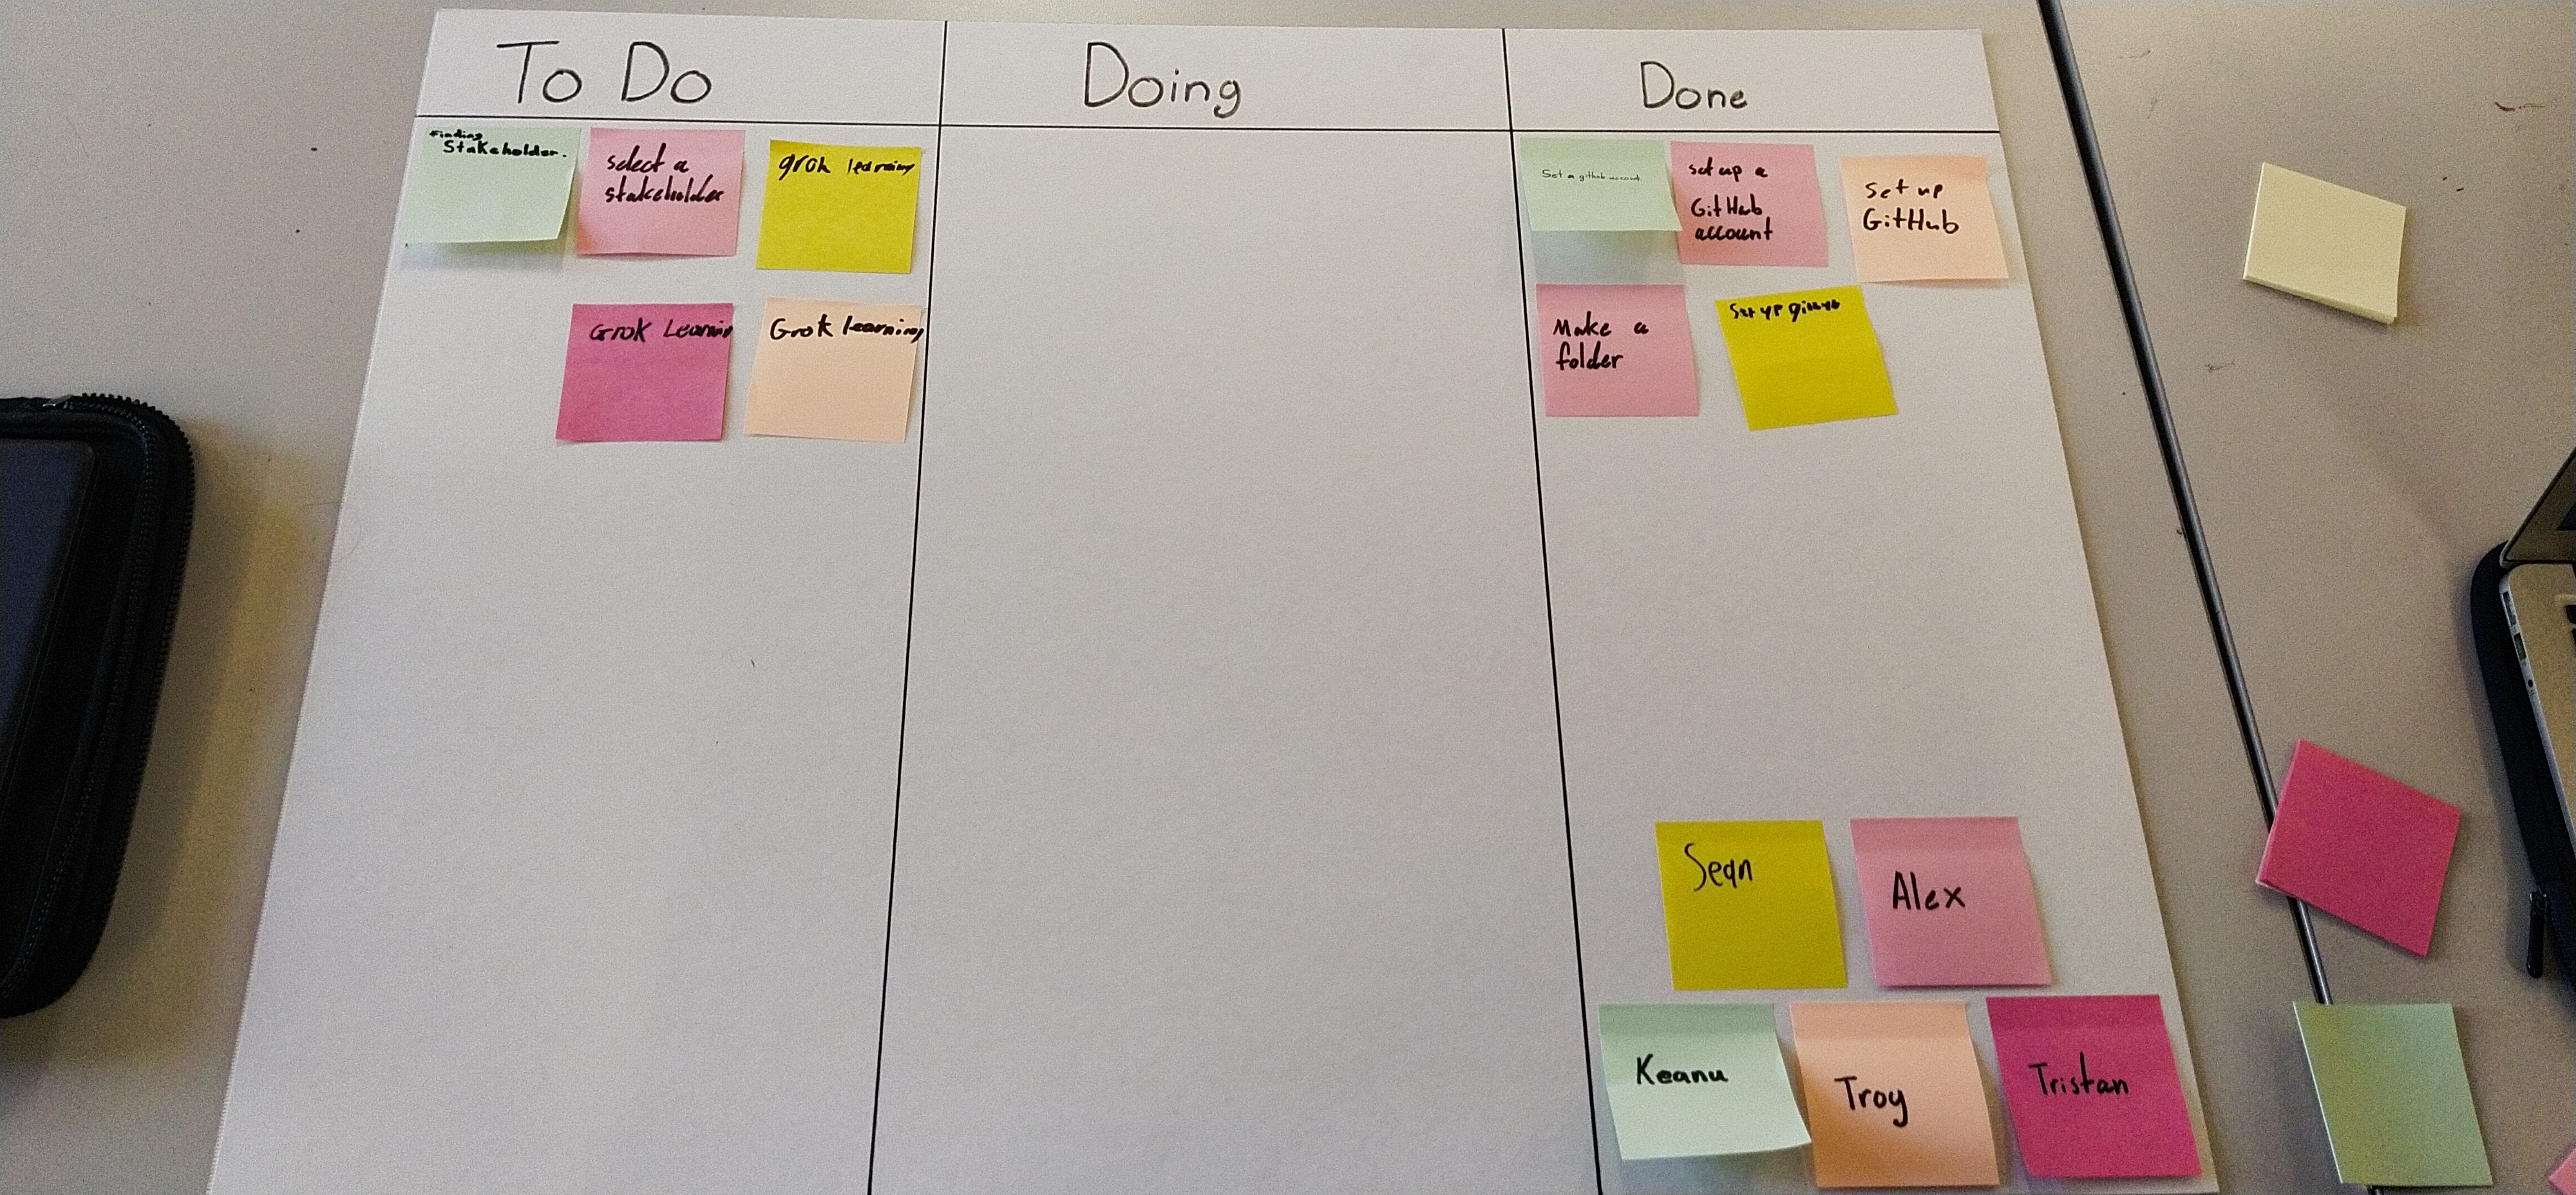 To Do
Doing
Done
Finding
Stakeholder.
select a
stakeholder
grok learning
Grok Learnin
Grok learning
Set a github account
set up a
GitHub
account
Set up
GitHub
Make a
folder
Set up
Sean
Alex
Keanu
Troy
Tristan